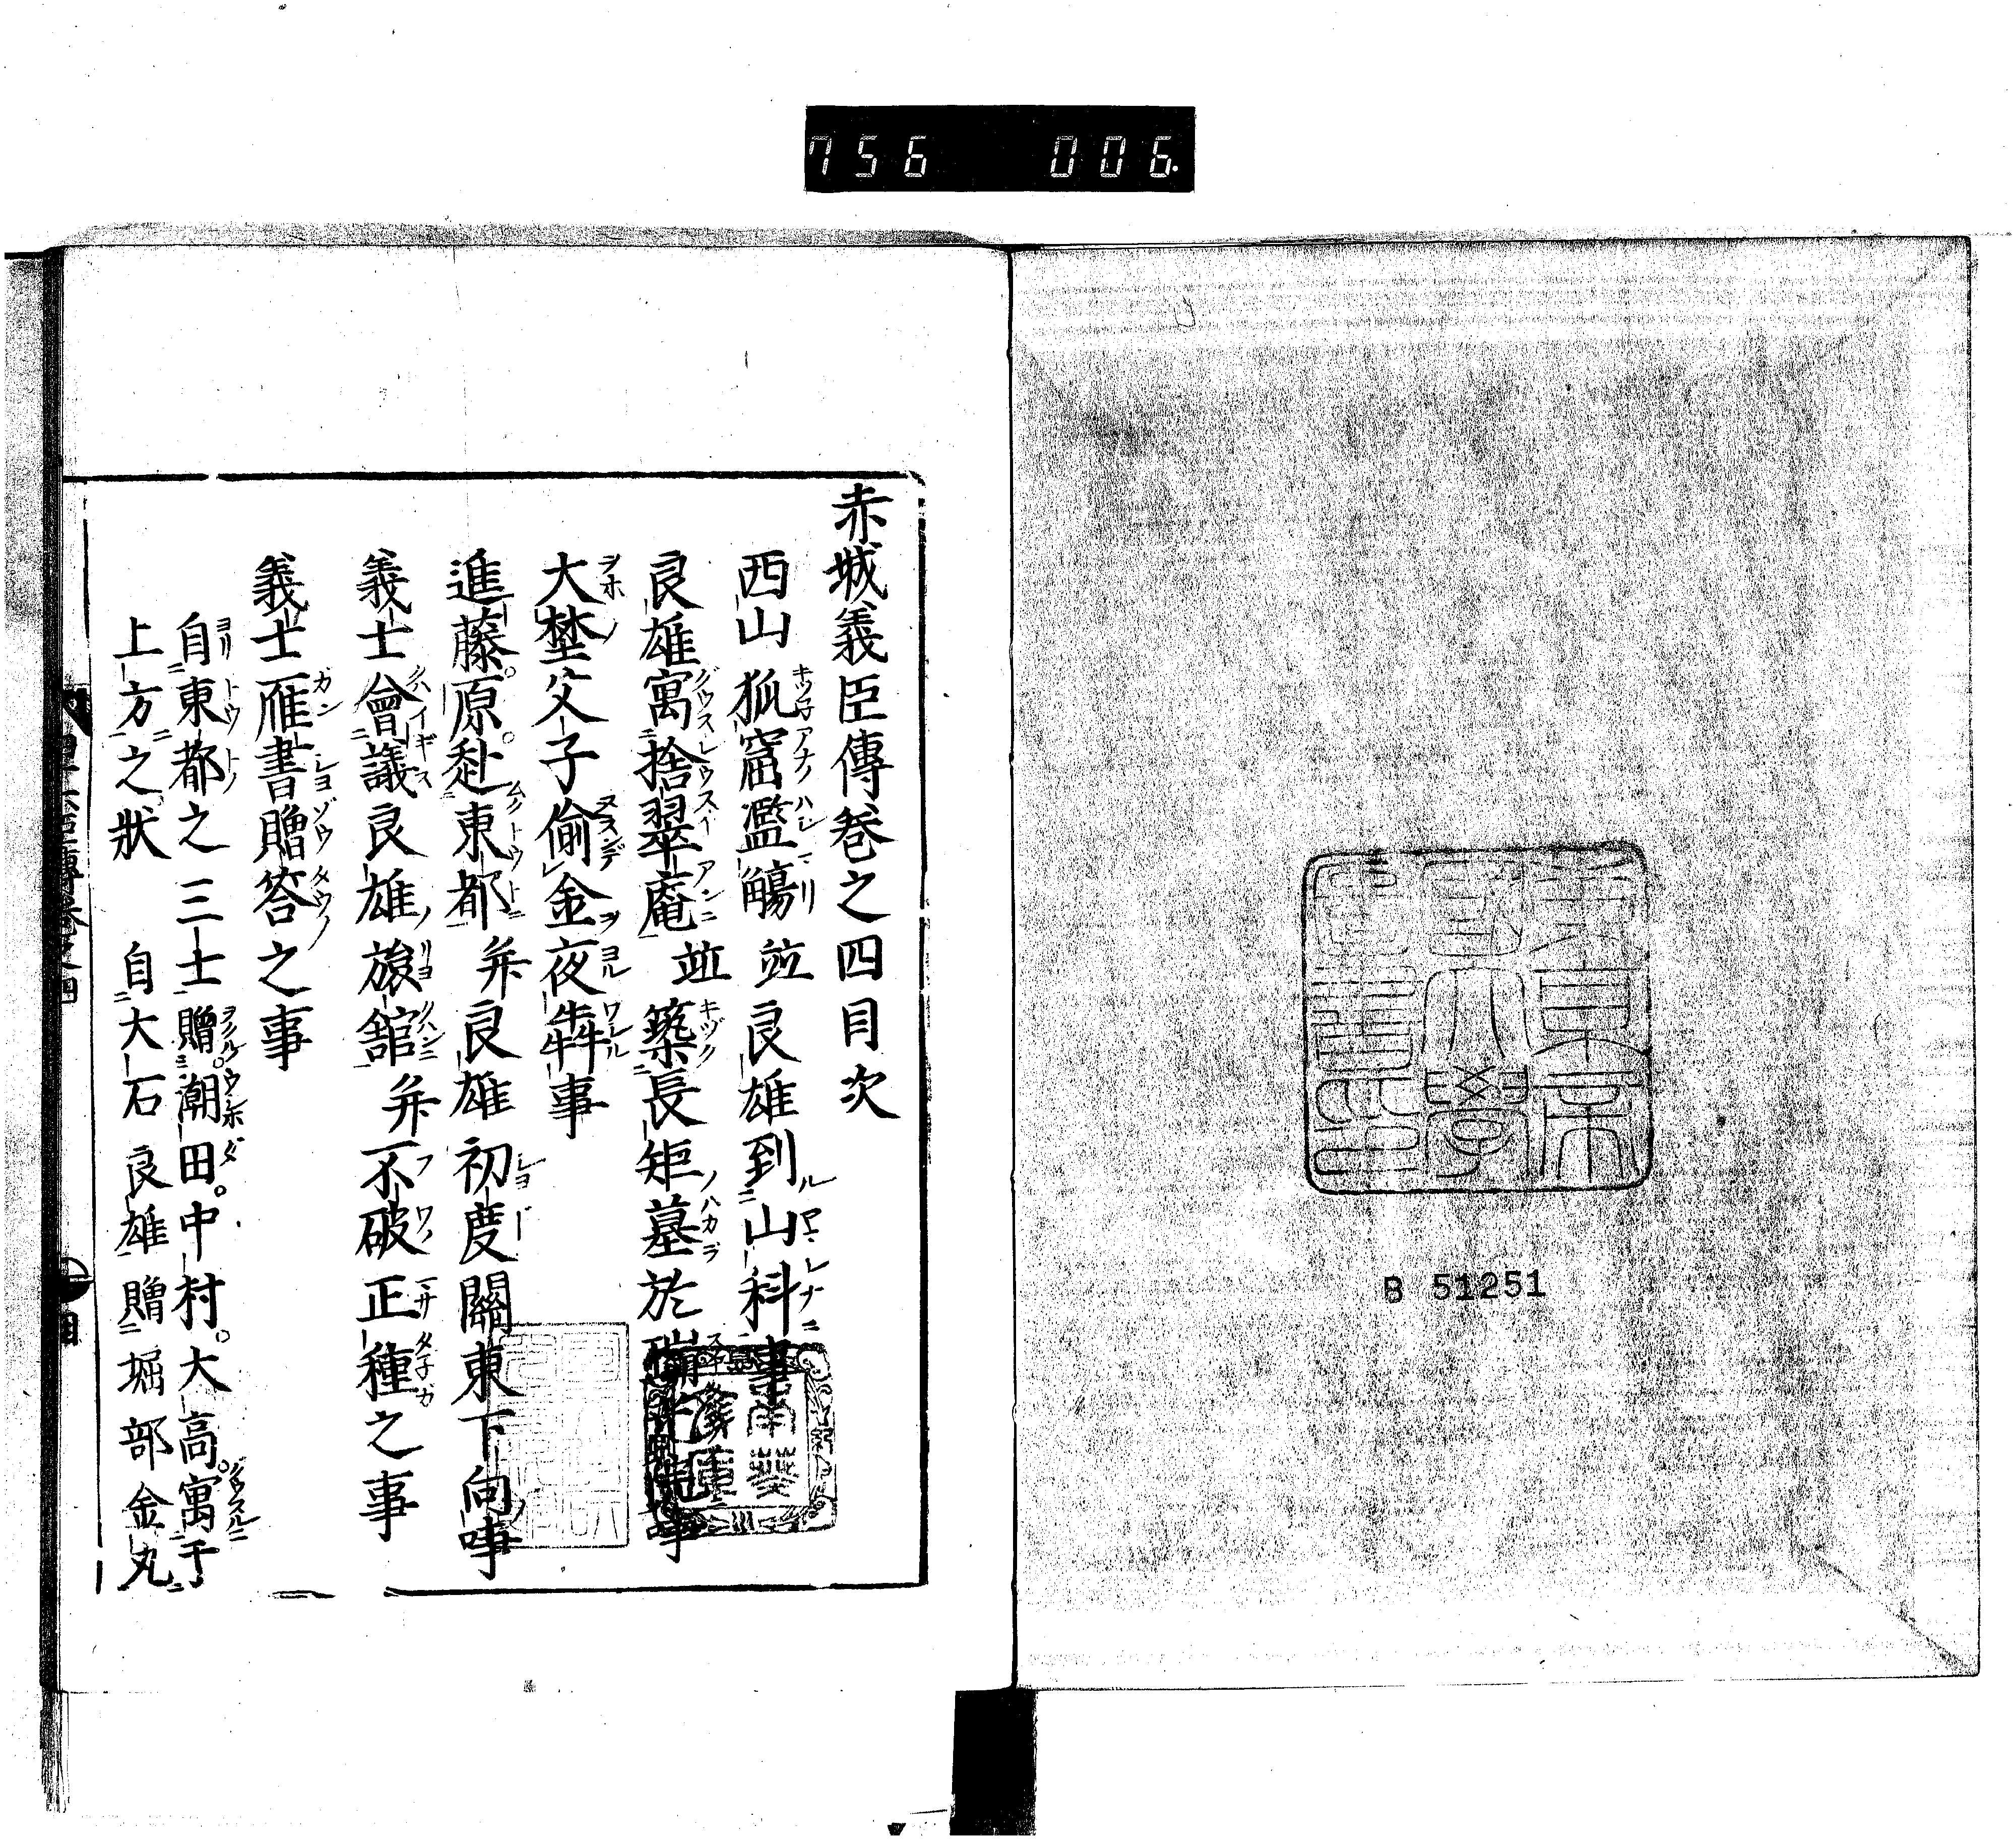 756 006.
B 51251
東京帝國大學圖書印
赤城義臣傳卷之四目次
西山狐窟濫觴 竝良雄到山科事
良雄寓捨翠庵 竝築長矩墓於瑞光院事
大埜父子偷金夜犇事
進藤。原。赴東都 并良雄初度關東下向事
義士會議良雄旅舘 并不破正種之事
義士雁書贈答之事
自東都之三士贈。潮田。中村。大高。寓于
上方之狀 自大石良雄贈堀部金丸